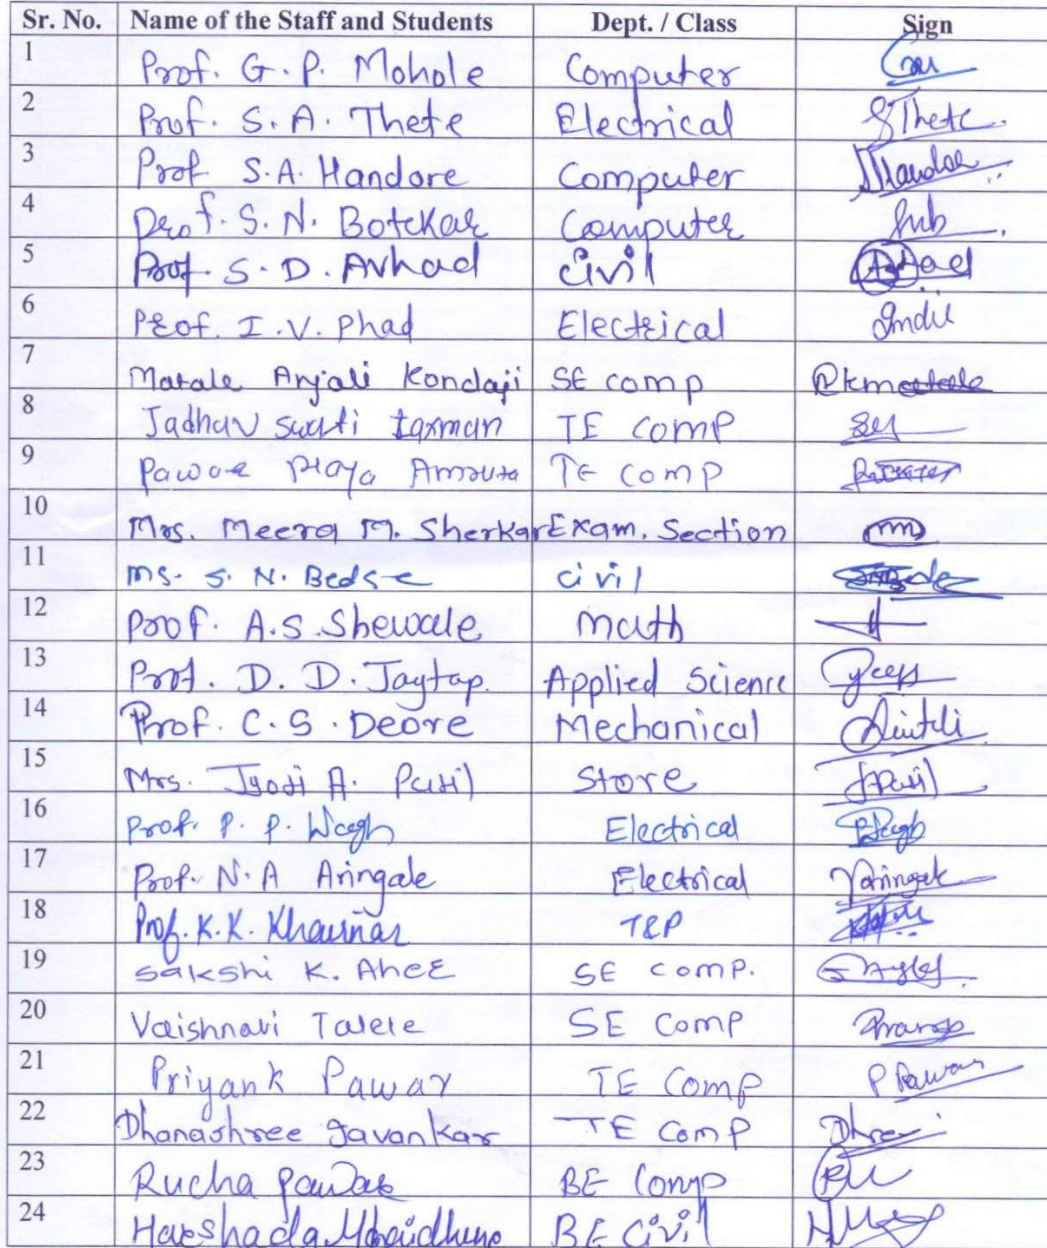 Sr. No. Name of the Staff and Students Dept. / Class Sign
1 Prof. G. P. Mohole Computer
2 Prof. S. A. Thete Electrical SThete.
3 Prof S.A. Handore Computer
4 Prof. S. N. Botekar Computer
5 Prof S. D. Avhad Civil
6 Prof. I. V. Phad Electrical
7 Matale Anjali Kondaji SE comp
8 Jadhav Swati Laxman TE comp
9 Pawar TE comp
10 Mrs. Meera M. Sherkar Exam. Section
11 Ms. S. N. Bedse civil
12 Prof. A.S. Shewale Math
13 Prof. D. D. Jagtap. Applied Science
14 Prof. C. S. Deore Mechanical
15 Mrs. Jyoti A. Patil Store JPatil
16 Prof. P. P. Wagh Electrical
17 Prof. N. A Aringale Electrical
18 Prof. K. K. Khairnar T&P
19 Sakshi K. Aher SE comp.
20 Vaishnavi Talele SE comp
21 Priyank Pawar TE Comp P Pawar
22 Dhanashree Javankar TE Comp
23 Rucha Pawar BE Comp
24 Harshada BE Civil